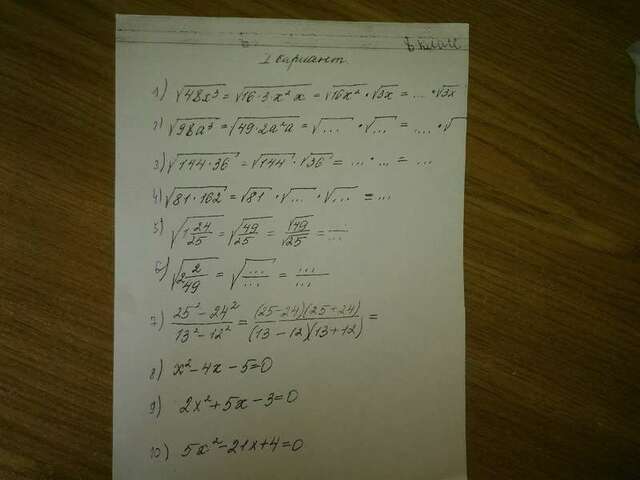 8 класс
I вариант
1) √48x³ = √16·3x²x = √16x² · √3x = ... · √3x
2) √98a³ = √49·2a²a = √... · √... = ... · √
3) √144·36 = √144 · √36 = ... · ... = ...
4) √81·162 = √81 · √... · √... = ...
5) √1 24/25 = √49/25 = √49/√25 = .../...
6) √2 2/49 = √.../... = .../...
7) 25² - 24²/13² - 12² = (25-24)(25+24)/(13-12)(13+12) =
8) x² - 4x - 5 = 0
9) 2x² + 5x - 3 = 0
10) 5x² - 21x + 4 = 0